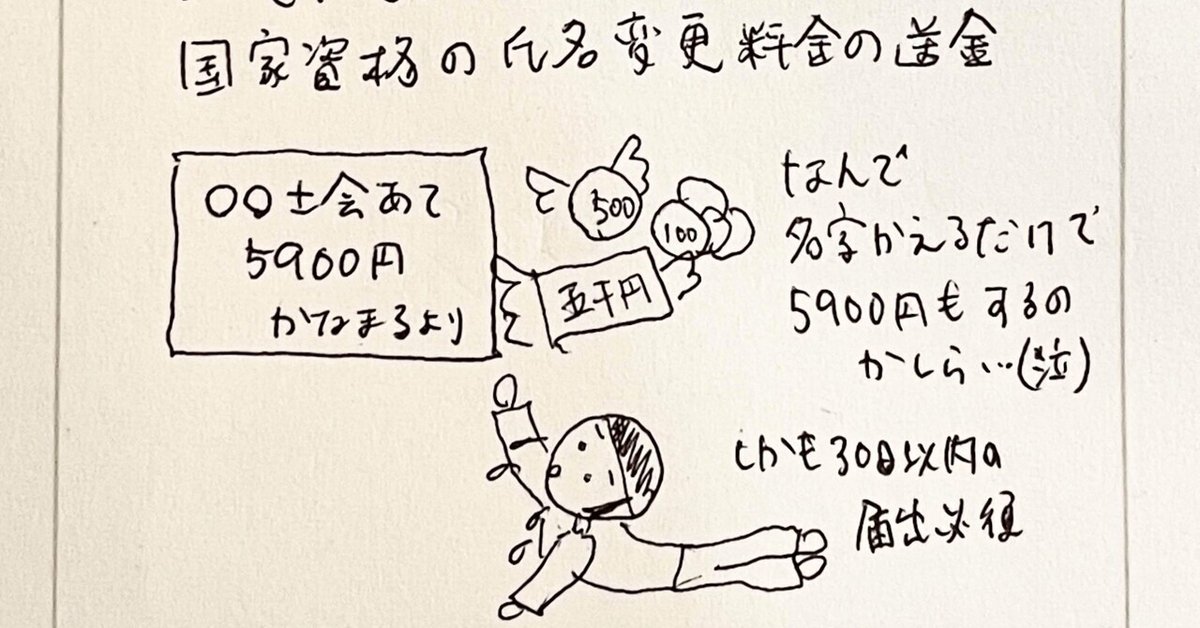 国家資格の氏名変更料金の送金
〇〇士会あて
5900円
かなまるより
500
100
五千円
なんで
名字かえるだけで
5900円もするの
かしら…(泣)
しかも30日以内の
届出必須